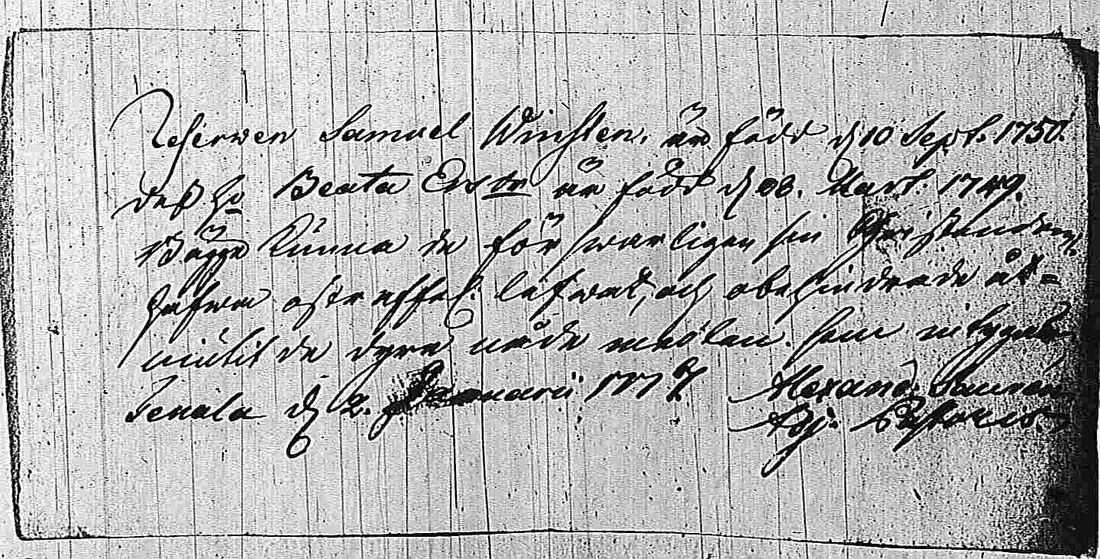 Reserven Samuel Winsten, är född d 10 Sept. 1750.
deß ho Beata Ersdr är född d 28. Mart. 1749.
Bägge kunna de förswarligen sin Christendom,
hafwa ostraffel. lefwat, och obehindrade åt-
niutit de dyra nåde medlen. som intygar
Tenala d 2. Januarii Alexand.
Adj. Pastoris